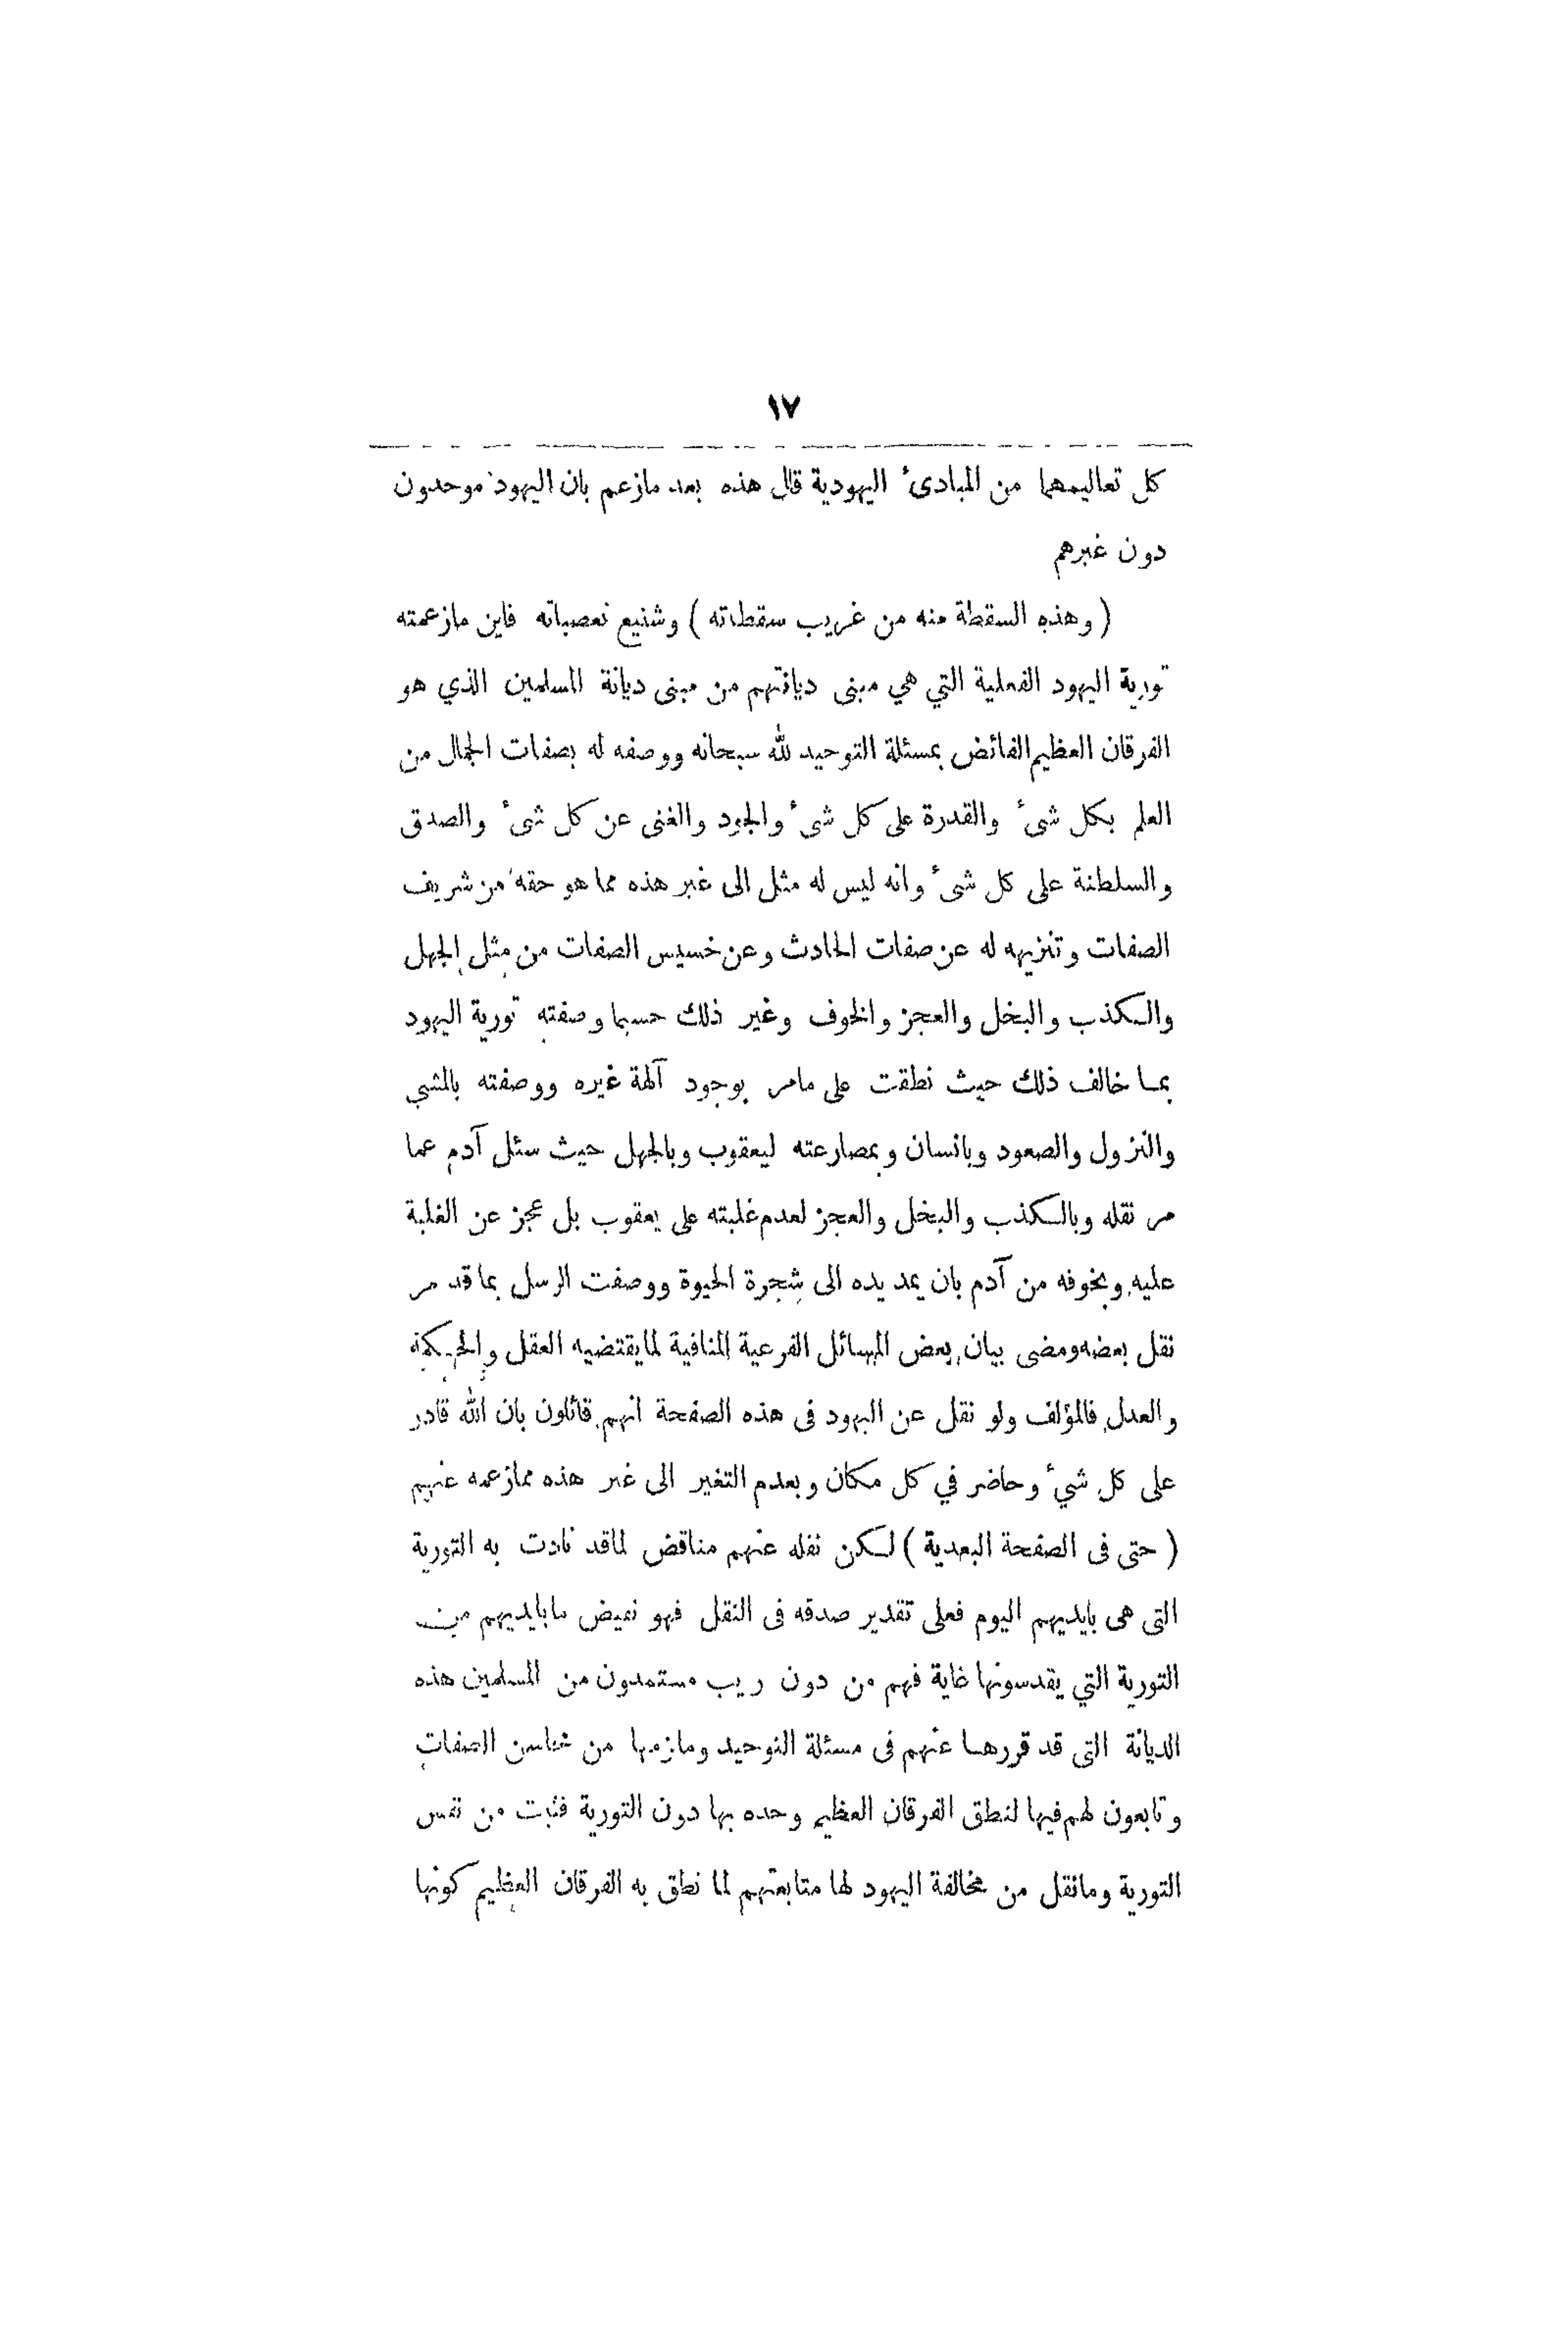 ١٧
كل تعاليمهما من المبادىٔ اليهودية قال هذه بعد مازعم بان اليهود موحدون
دون غيرهم
( وهذه السقطة منه من غريب سقطاته ) وشنيع تعصباته فاين مازعمته
تورية اليهود الفعلية التي هي مبنى ديانتهم من مبنى ديانة المسلمين الذي هو
الفرقان العظيم الفائض بمسئلة التوحيد لله سبحانه ووصفه له بصفات الجمال من
العلم بكل شىٔ والقدرة على كل شىٔ والجود والغنى عن كل شىٔ والصدق
والسلطنة على كل شىٔ وانه ليس له مثل الى غير هذه مما هو حقه من شريف
الصفات وتنزيهه له عن صفات الحادث وعن خسيس الصفات من مثل الجهل
والكذب والبخل والعجز والخوف وغير ذلك حسبما وصفته تورية اليهود
بما خالف ذلك حيث نطقت على مامر بوجود آلهة غيره ووصفته بالمشي
والنزول والصعود وبانسان وبمصارعته ليعقوب وبالجهل حيث سئل آدم عما
مر نقله وبالكذب والبخل والعجز لعدم غلبته على يعقوب بل عجز عن الغلبة
عليه وبخوفه من آدم بان يمد يده الى شجرة الحيوة ووصفت الرسل بما قد مر
نقل بعضه ومضى بيان بعض المسائل الفرعية المنافية لما يقتضيه العقل والحكمة
والعدل فالمؤلف ولو نقل عن اليهود فى هذه الصفحة انهم قائلون بان الله قادر
على كل شئ وحاضر في كل مكان وبعدم التغير الى غير هذه ممازعمه عنهم
( حتى فى الصفحة البعدية ) لكن نقله عنهم مناقض لماقد نادت به التورية
التى هى بايديهم اليوم فعلى تقدير صدقه فى النقل فهو نقيض مابايديهم من
التورية التي يقدسونها غاية فهم من دون ريب مستمدون من المسلمين هذه
الديانة التى قد قررها عنهم فى مسئلة التوحيد ومالزمها من محاسن الصفات
وتابعون لهم فيها لنطق الفرقان العظيم وحده بها دون التورية فثبت من نفس
التورية ومانقل من مخالفة اليهود لها متابعتهم لما نطق به الفرقان العظيم كونها